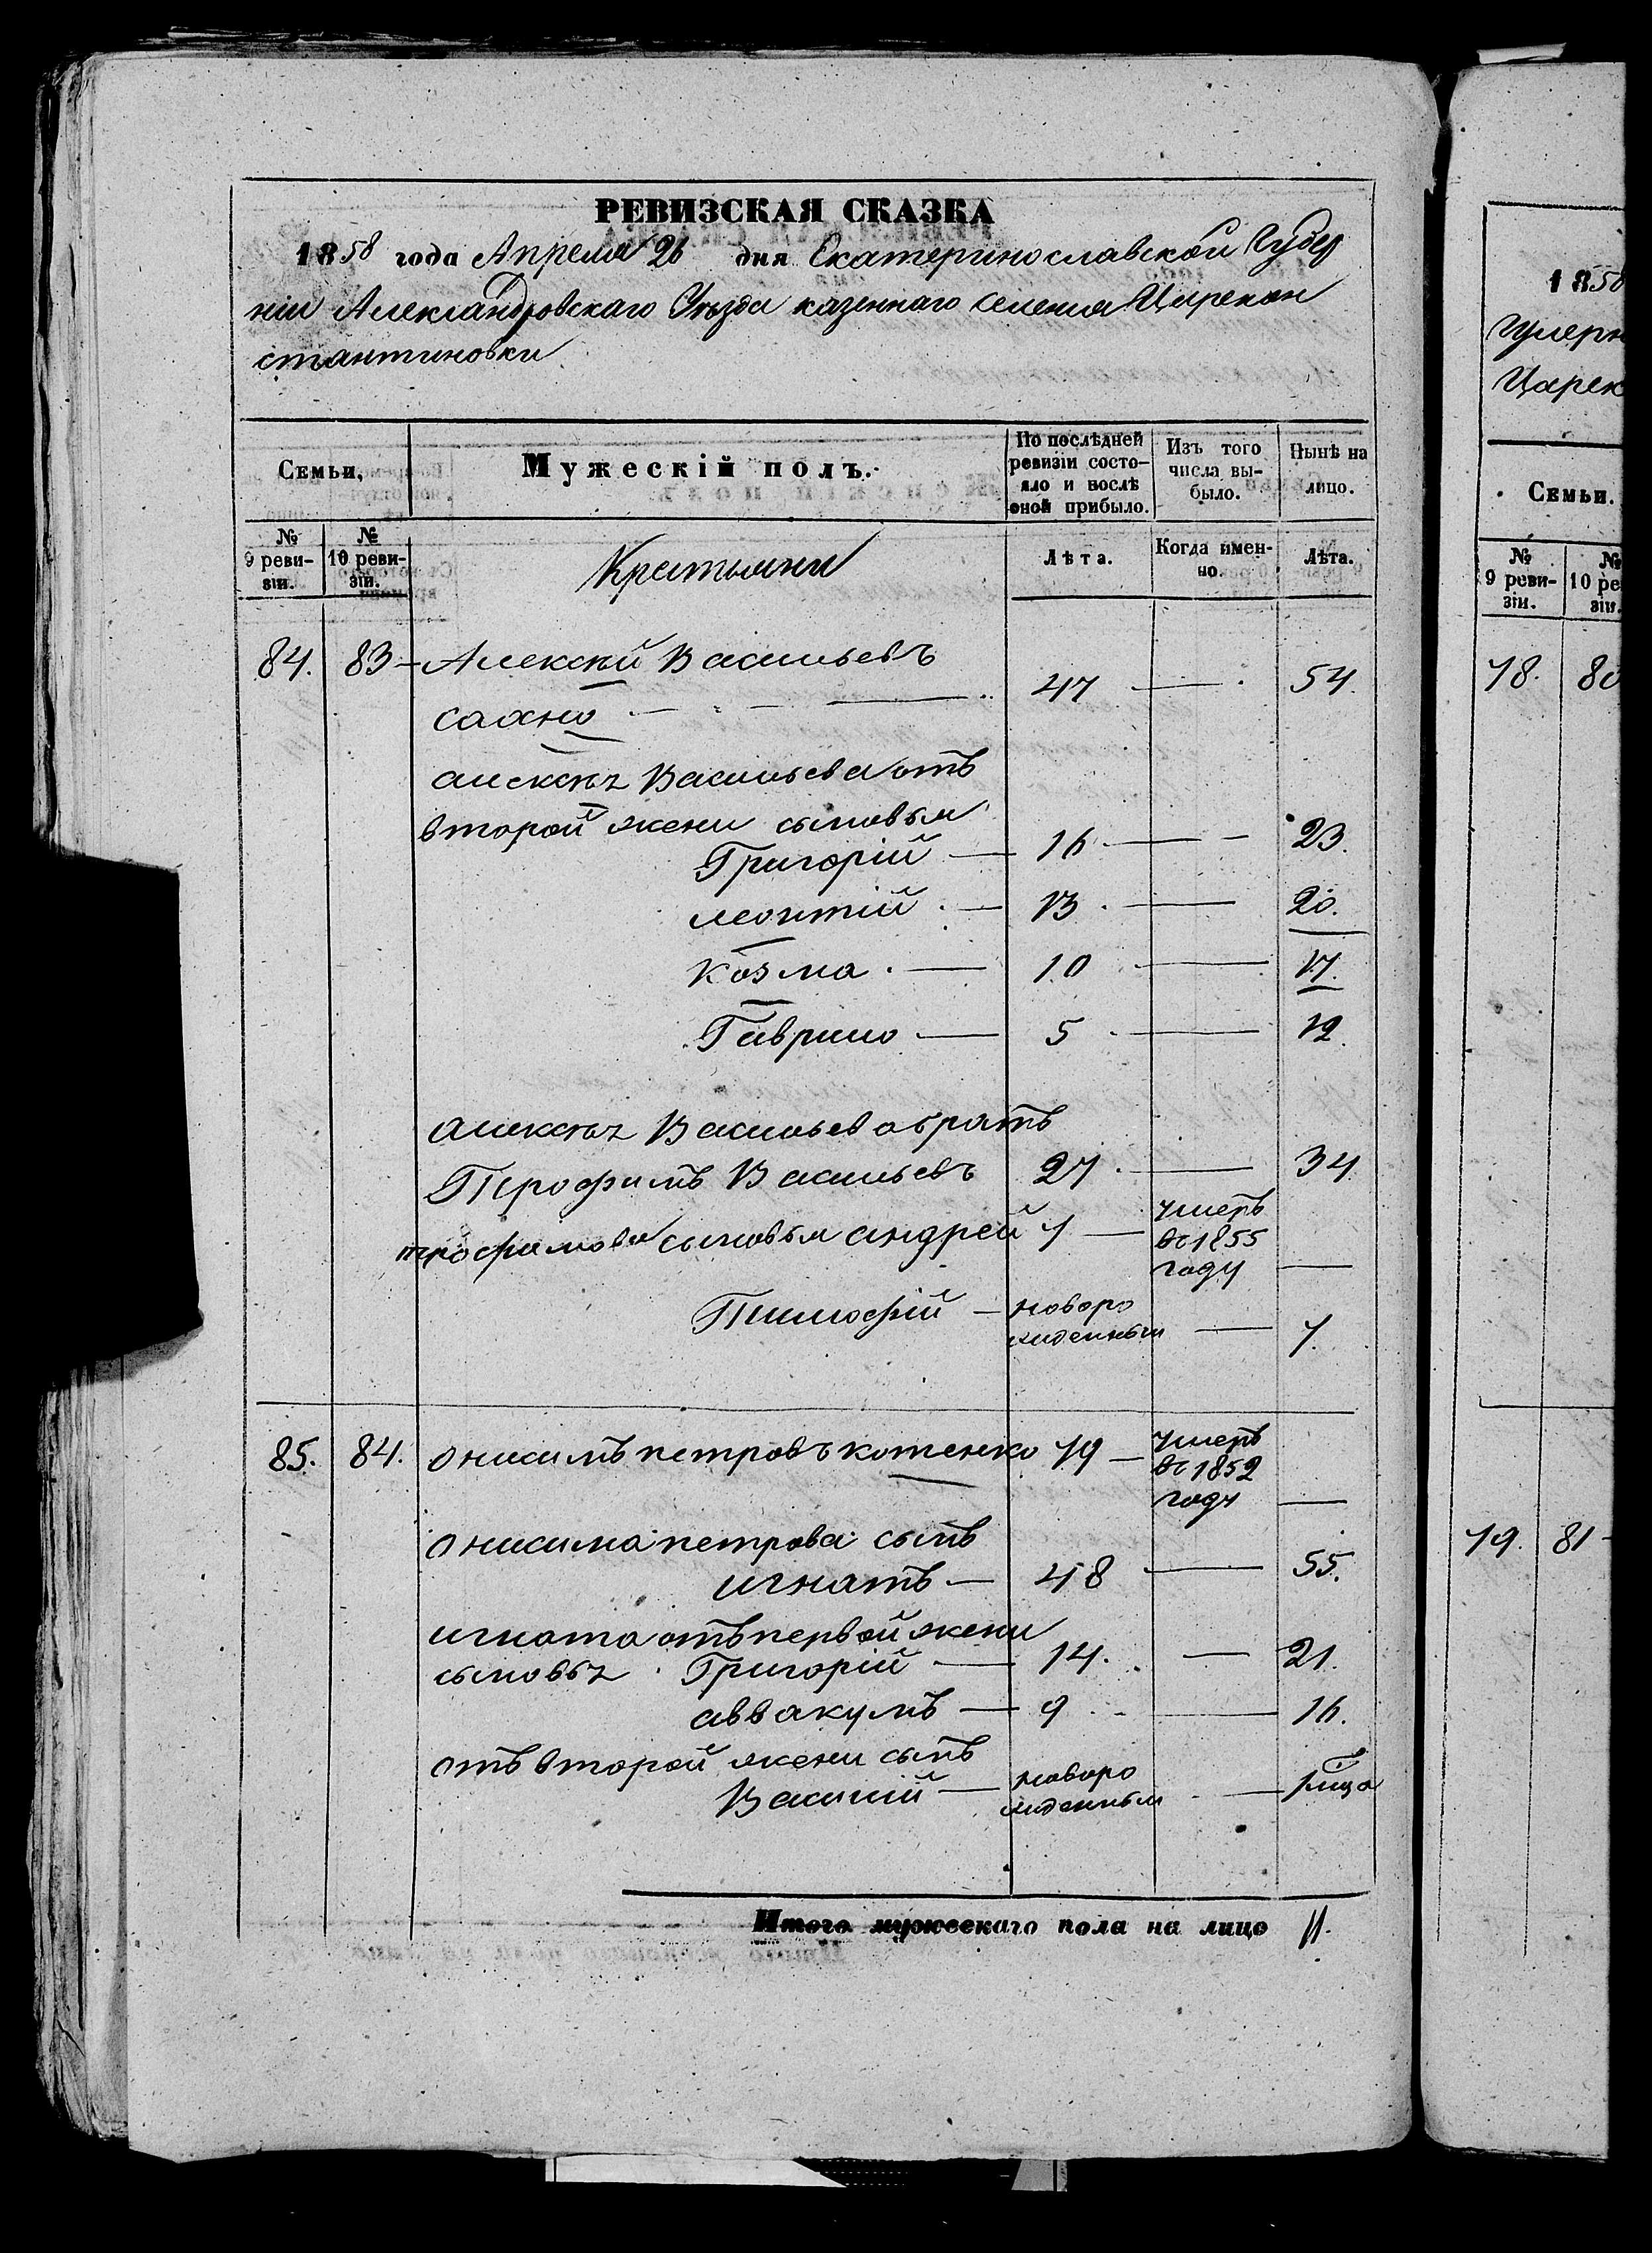 РЕВИЗСКАЯ СКАЗКА
1858 года Апреля 26 дня Екатеринославской Губер
ніи Александровскаго Уѣзда казеннаго селения Царекон
стантиновки
Семьи,
Мужескій полъ.
По послѣдней
ревизіи состо-
яло и послѣ
оной прибыло.
Изъ того
числа вы-
было.
Нынѣ на
лицо.
№
9 реви-
зіи.
№
10 реви-
зіи.
Крестьяни
Лѣта.
Когда имен-
но.
Лѣта.
84. 83 Алексѣй Васильевъ
47 54.
алексѣя Васильева отъ
второй жени сыновья
Григорій 16 23.
леонтій 13 20.
Козма 10 17.
Гаврило 5 12
алексѣя Васильева братъ
Трофимъ Васильевъ 27 34
трофимова сыновья андрей 7 умеръ
въ 1855
году
Тимофій новоро
жденный 7.
85. 84. онисимъ петровъ котенко 79 умеръ
въ 1852
году
онисима петрова сынъ
игнатъ 48 55.
игната отъ первой жени
сыновья Григорій 14. 21.
аввакумъ 9 16.
отъ второй жени сынъ
Василій новоро
жденный 1 год
Итого мужескаго пола на лицо 11.
1858
Царек
Семьи.
№
9 реви-
зіи.
№
10 ре
зіи.
78. 80
79. 81